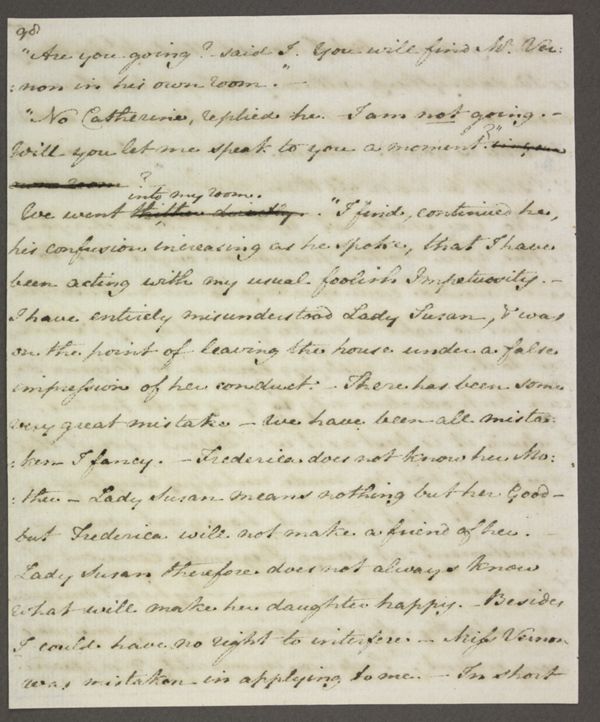 98
"Are you going? said I. You will find Mr. Ver:
:non in his own room." —
"No Catherine, replied he. — I am not going. —
Will you let me speak to you a moment?"
into my room.
We went thither directly. "I find, continued he,
his confusion increasing as he spoke, that I have
been acting with my usual foolish Impetuosity. —
I have entirely misunderstood Lady Susan, & was
on the point of leaving the house under a false
impression of her conduct. — There has been some
very great mistake — we have been all mista:
:ken I fancy. — Frederica does not know her Mo:
:ther — Lady Susan means nothing but her Good —
but Frederica will not make a friend of her. —
Lady Susan therefore does not always know
what will make her daughter happy. — Besides
I could have no right to interfere — Miss Vernon
was mistaken in applying to me. — In short